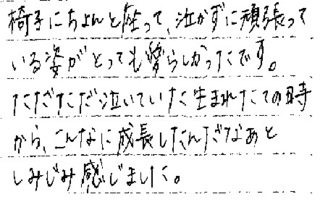 椅子にちょんと座って、泣かずに頑張って
いる姿がとっても愛らしかったです。
ただただ泣いていた生まれたての時
から、こんなに成長したんだなあと
しみじみ感じました。